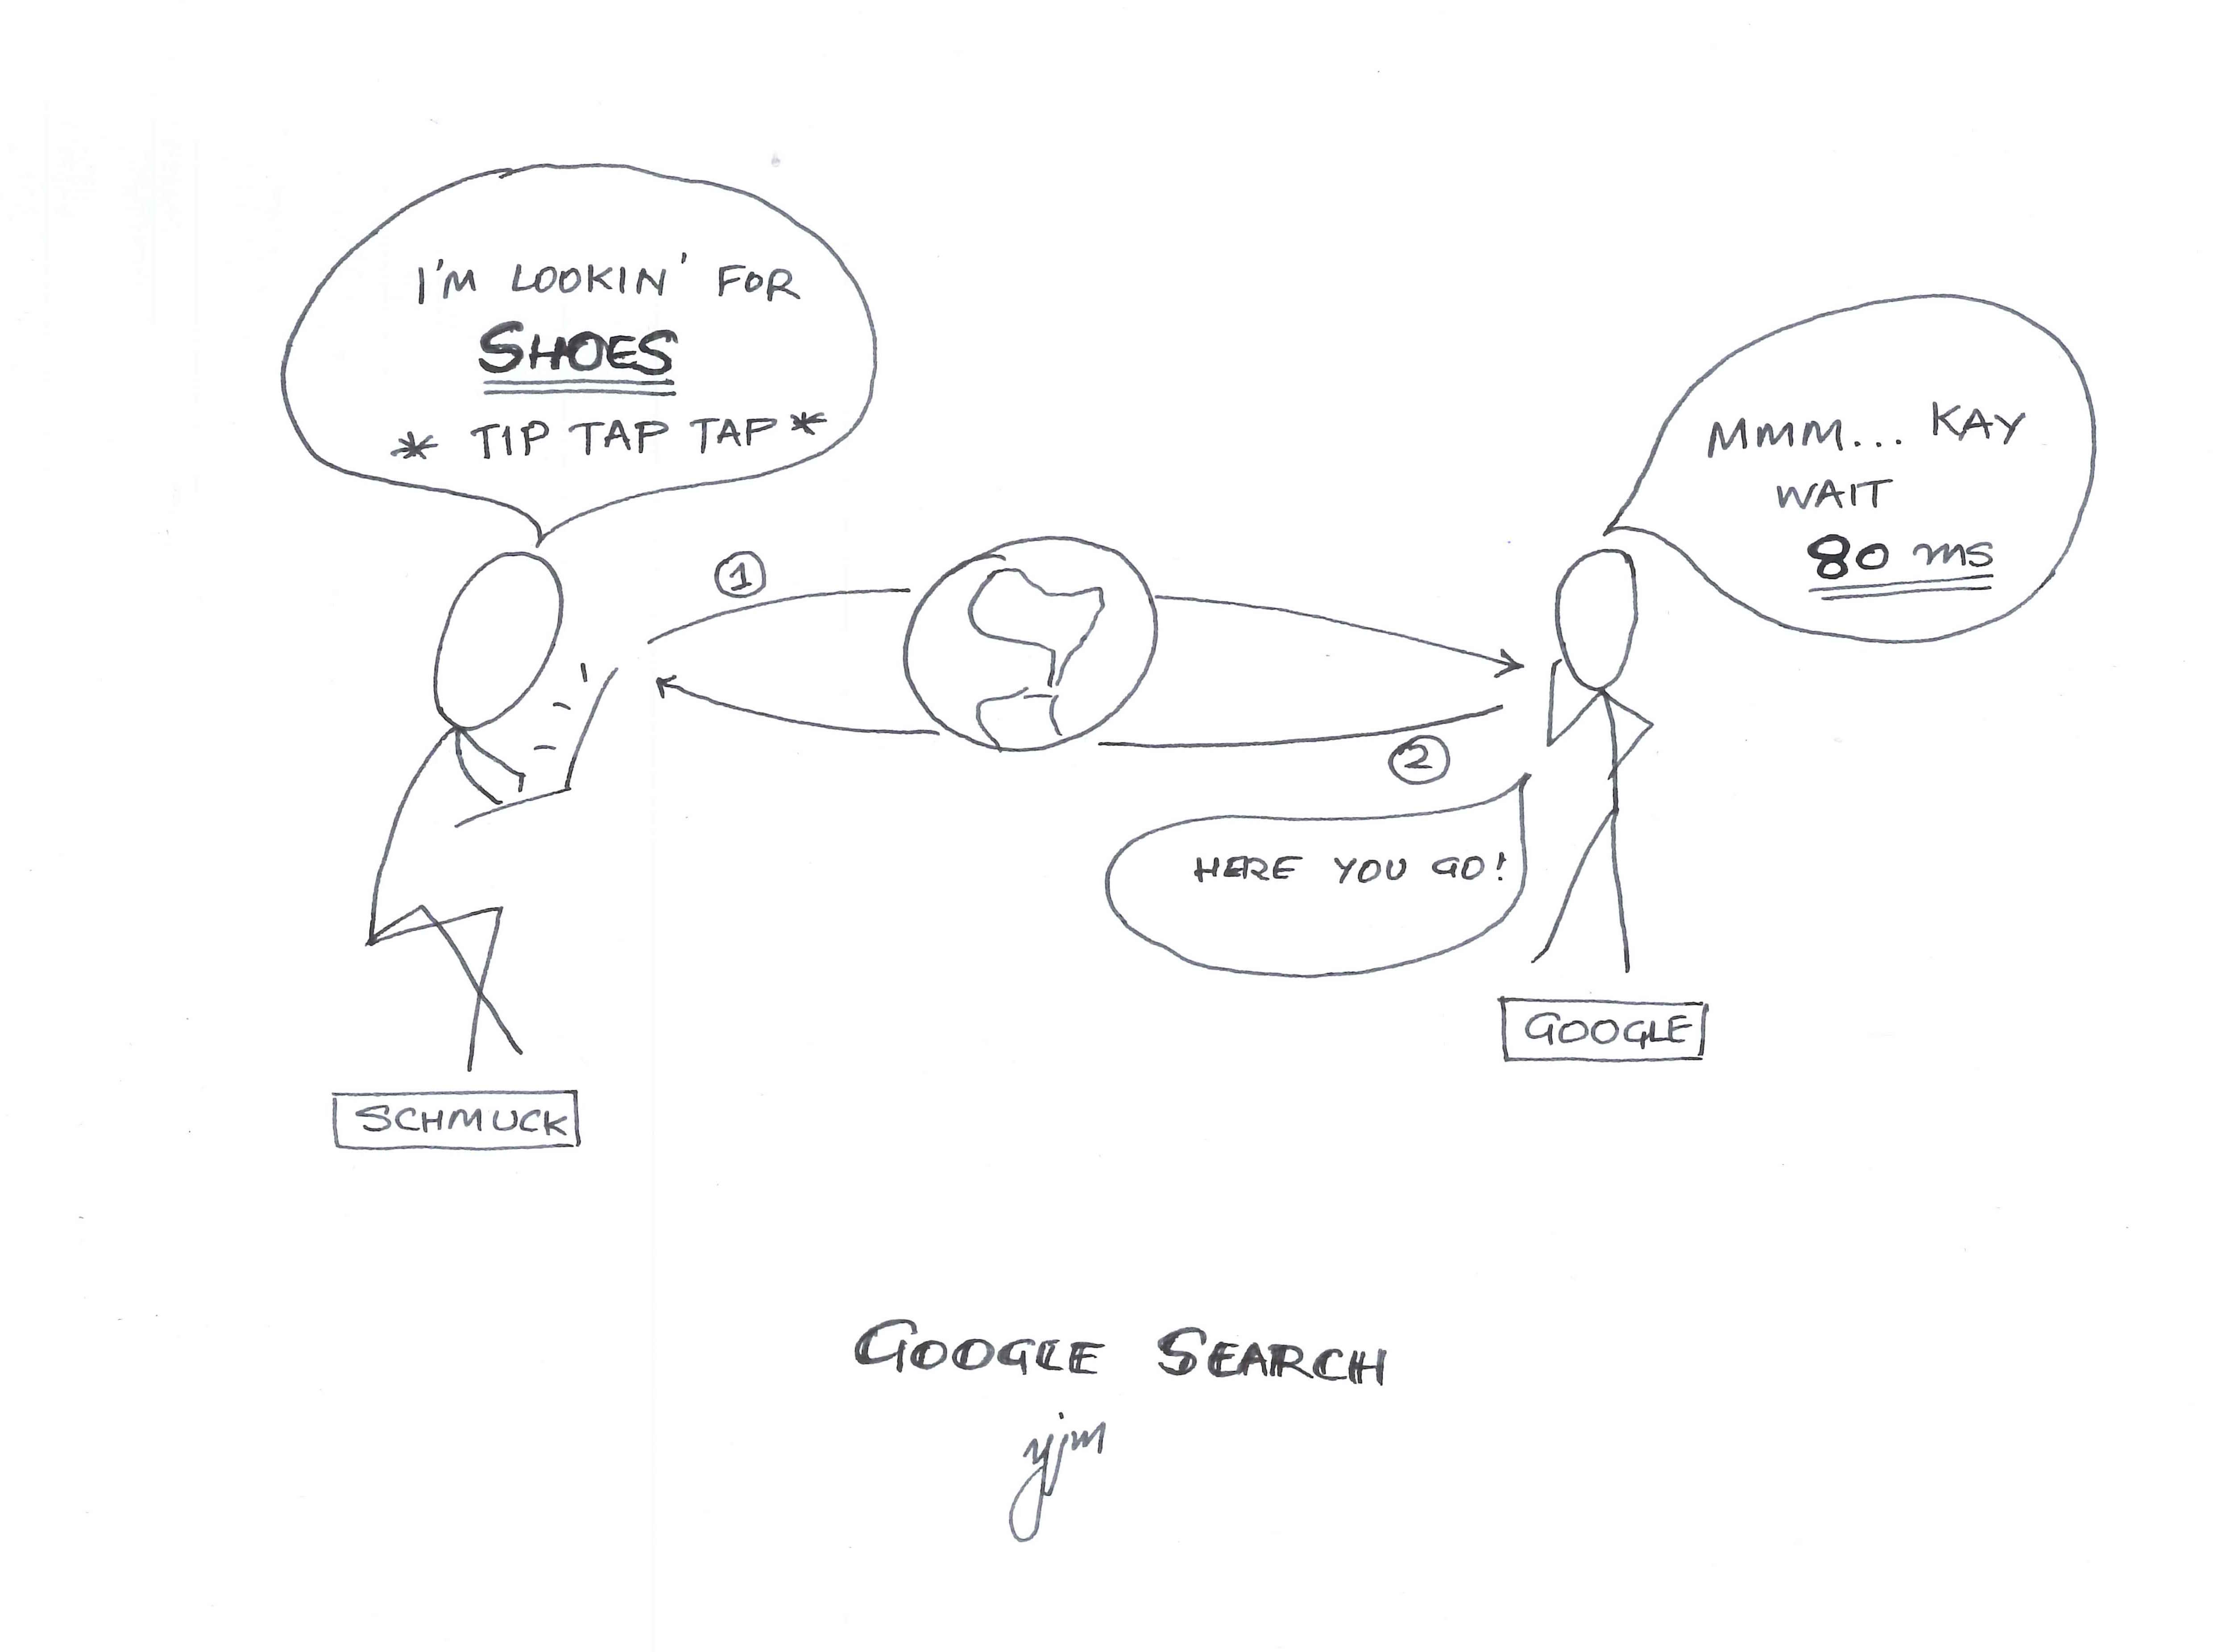 I'M LOOKIN' FOR
SHOES
* TIP TAP TAP *
MMM... KAY
WAIT
80 ms
1
2
HERE YOU GO!
GOOGLE
SCHMUCK
GOOGLE SEARCH
yjm